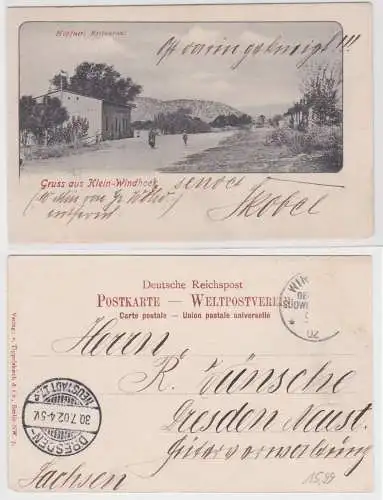 Höpfner's Restaurant
Oft darin gekneipt!!!
Gruss aus Klein-Windhoek
sendet
(10 Min von Gr. Wdhk)
entfernt
Skobel
Deutsche Reichspost
POSTKARTE — WELTPOSTVEREIN
Carte postale — Union postale universelle
WIN
DE
SÜDWE
02
Herrn
R. Wünsche
Dresden Neust.
Güterverwaltung
Sachsen
DRESDEN-
NEUSTADT 1
30.7.02.4-5V.
15,99